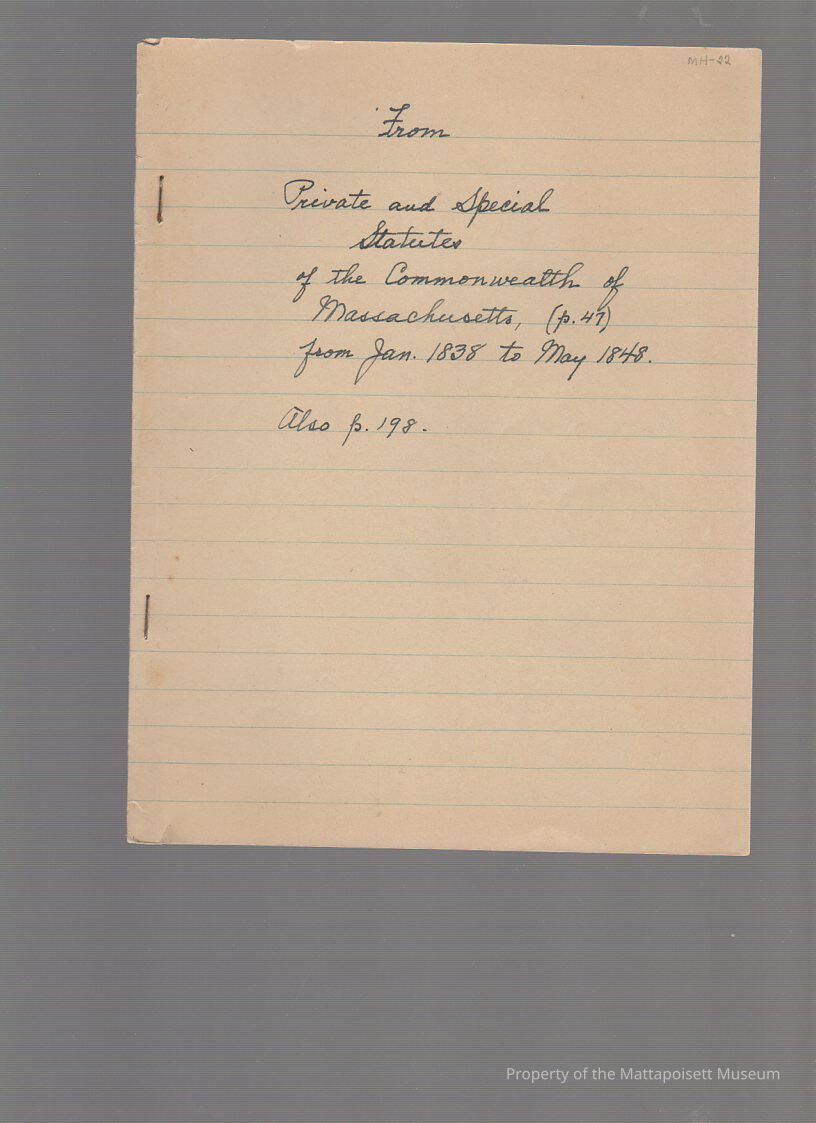 MH-22
From
Private and Special
Statutes
of the Commonwealth of
Massachusetts, (p. 47)
from Jan. 1838 to May 1848.
Also p. 198.
Property of the Mattapoisett Museum